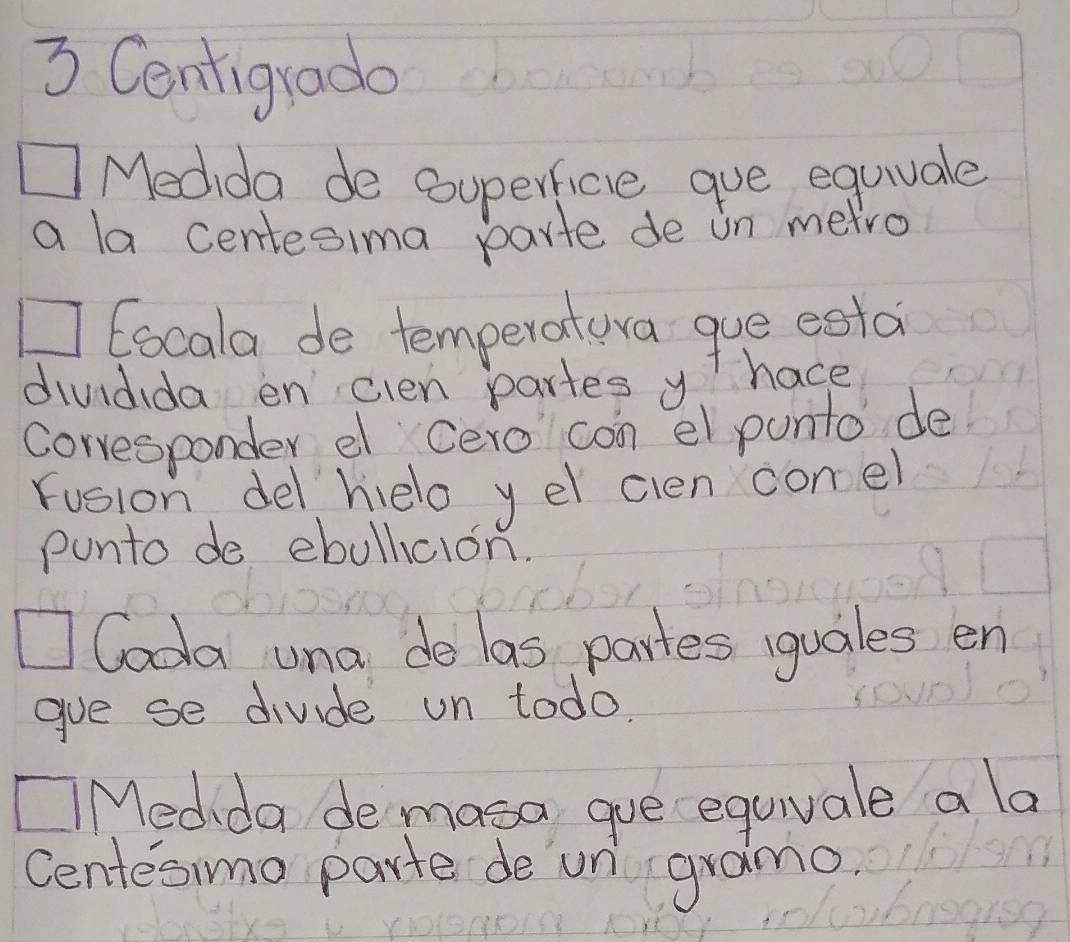 3 Centigrado
Medida de superficie que equivale
a la centesima parte de un metro
Escala de temperatura que está
dividida en cien partes y hace
corresponder el cero con el punto de
fusion del hielo y el cien con el
punto de ebullición.
Cada una de las partes iguales en
que se divide un todo.
Medida de masa que equivale a la
centésima parte de un gramo.